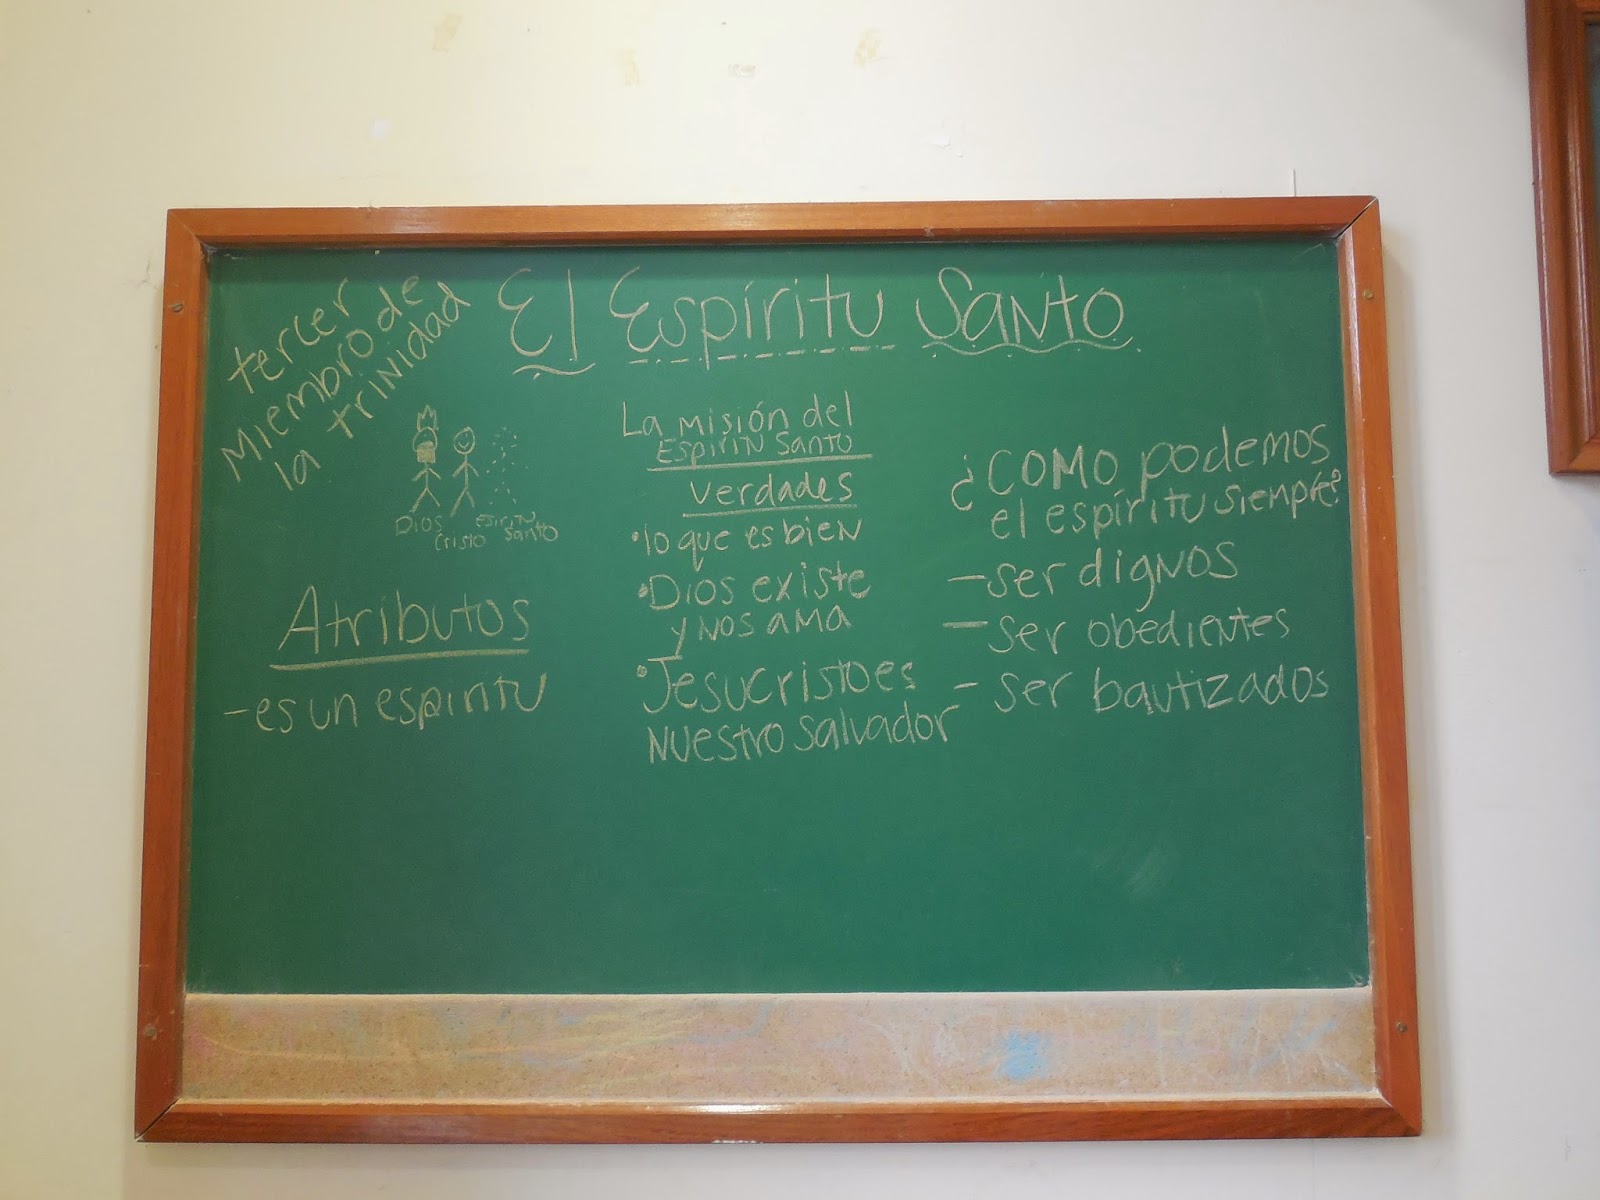 El Espíritu Santo
tercer
Miembro de
la trinidad
Dios
Cristo
Esiritu
Santo
Atributos
-es un espiritu
La misión del
Espiritu Santo
verdades
•lo que es bien
•Dios existe
y nos ama
•Jesucristo es
Nuestro salvador
¿COMO podemos
el espíritu siempre?
-ser dignos
- ser obedientes
- ser bautizados